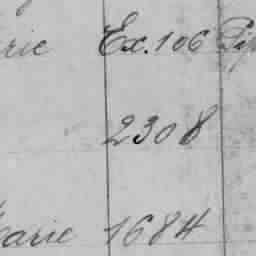 rie Ex. 106
2308
arie 1684